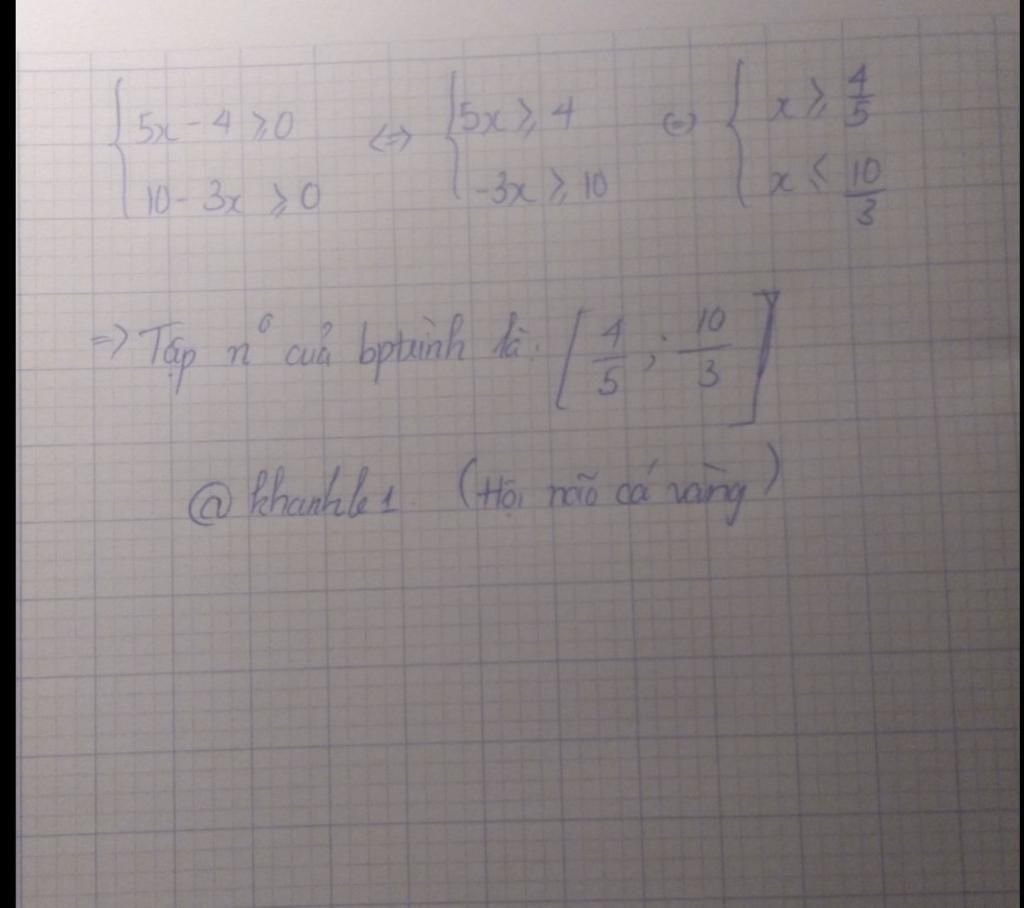 { 5x - 4 ⩾ 0 <=> { 5x ⩾ 4 <=> { x ⩾ 4/5
10 - 3x ⩾ 0 -3x ⩾ 10 x ⩽ 10/3
=> Tập n⁰ của bptrình là: [4/5 ; 10/3]
@khanhle1 (Hội não cá vàng)